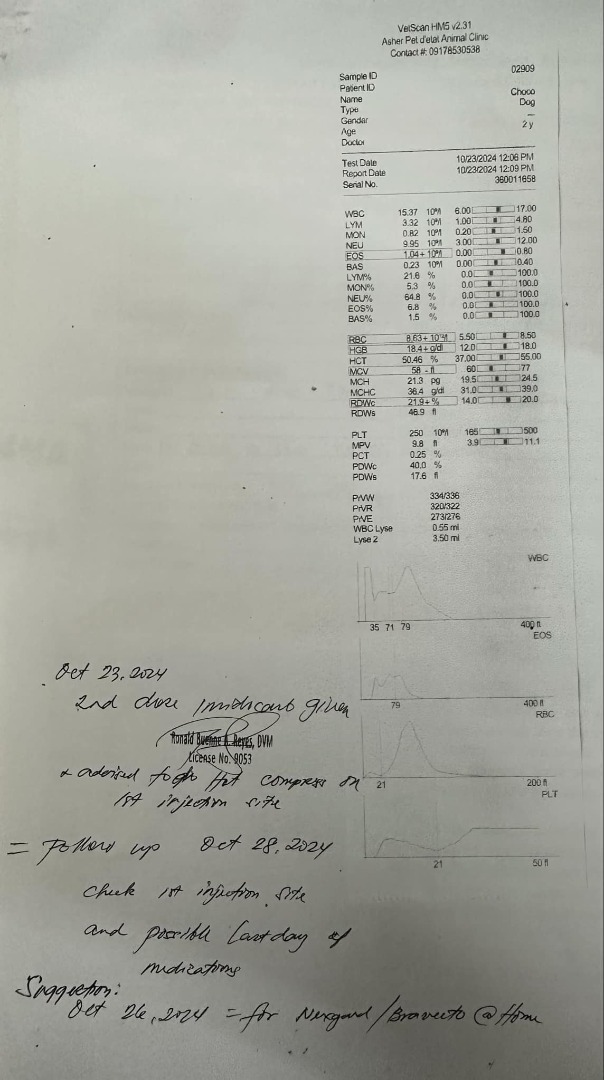 VetScan HM5 v2.31
Asher Pet d'etat Animal Clinic
Contact #: 09178530538
Sample ID 02909
Patient ID
Name Choco
Type Dog
Gender —
Age 2 y
Doctor
Test Date 10/23/2024 12:06 PM
Report Date 10/23/2024 12:09 PM
Serial No. 360011658
WBC 15.37 10⁹/l 6.00 17.00
LYM 3.32 10⁹/l 1.00 4.80
MON 0.82 10⁹/l 0.20 1.50
NEU 9.95 10⁹/l 3.00 12.00
EOS 1.04+ 10⁹/l 0.00 0.80
BAS 0.23 10⁹/l 0.00 0.40
LYM% 21.6 % 0.0 100.0
MON% 5.3 % 0.0 100.0
NEU% 64.8 % 0.0 100.0
EOS% 6.8 % 0.0 100.0
BAS% 1.5 % 0.0 100.0
RBC 8.63+ 10¹²/l 5.50 8.50
HGB 18.4+ g/dl 12.0 18.0
HCT 50.46 % 37.00 55.00
MCV 58 - fl 60 77
MCH 21.3 pg 19.5 24.5
MCHC 36.4 g/dl 31.0 39.0
RDWc 21.9+ % 14.0 20.0
RDWs 46.9 fl
PLT 250 10⁹/l 165 500
MPV 9.8 fl 3.9 11.1
PCT 0.25 %
PDWc 40.0 %
PDWs 17.6 fl
P/V/W 334/336
P/V/R 320/322
P/V/E 273/276
WBC Lyse 0.55 ml
Lyse 2 3.50 ml
WBC
35 71 79 400 fl
EOS
79 400 fl
RBC
21 200 fl
PLT
21 50 fl
Oct 23, 2024
2nd dose given
Ronald A. Reyes, DVM
License No. 9053
advised to Hot compress on
1st injection site
= Follow up Oct 28, 2024
Check 1st injection site
and possible last day of
medications
Suggestion:
Oct 26, 2024 = for Nexgard/Bravecto @ Home